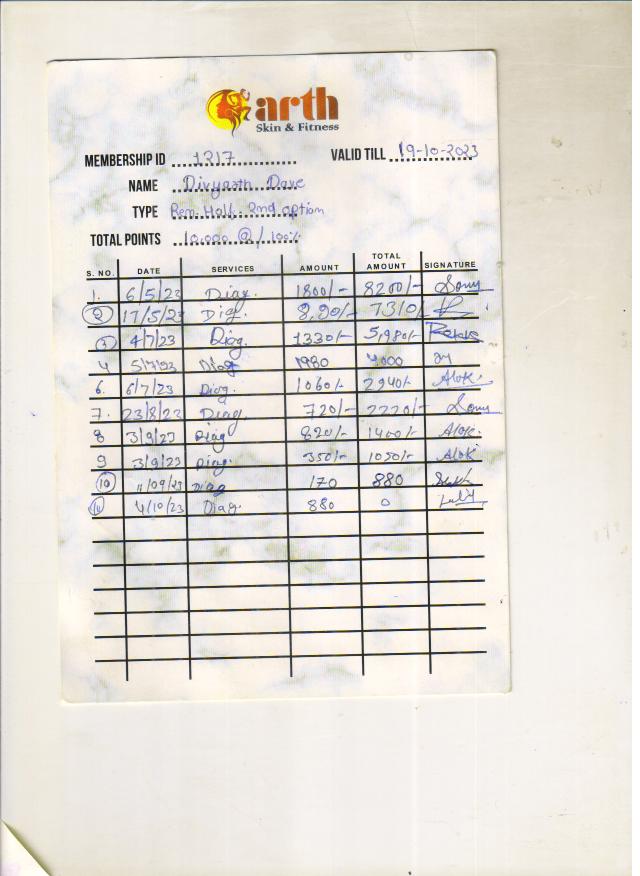 arth
Skin & Fitness
MEMBERSHIP ID 1217 VALID TILL 19-10-2023
NAME Divyarth Dave
TYPE Ren. Half 2nd option
TOTAL POINTS 10,000 @/100%
S. NO. DATE SERVICES AMOUNT TOTAL AMOUNT SIGNATURE
1. 6/5/23 Diag. 1800/- 8200/- Sonu
2 17/5/23 Diag. 8,90/- 7310/-
3 4/7/23 Diag. 1330/- 5,980/-
4 5/7/23 Diag 1980 4000
6. 6/7/23 Diag. 1060/- 2940/- Alok.
7. 23/8/23 Diag. 720/- 2220/- Sonu
8 3/9/23 Diag 820/- 1400/- Alok.
9 3/9/23 Diag. 350/- 1050/- Alok
10 11/09/23 Diag 170 880
4/10/23 Diag. 880 0 Lalit